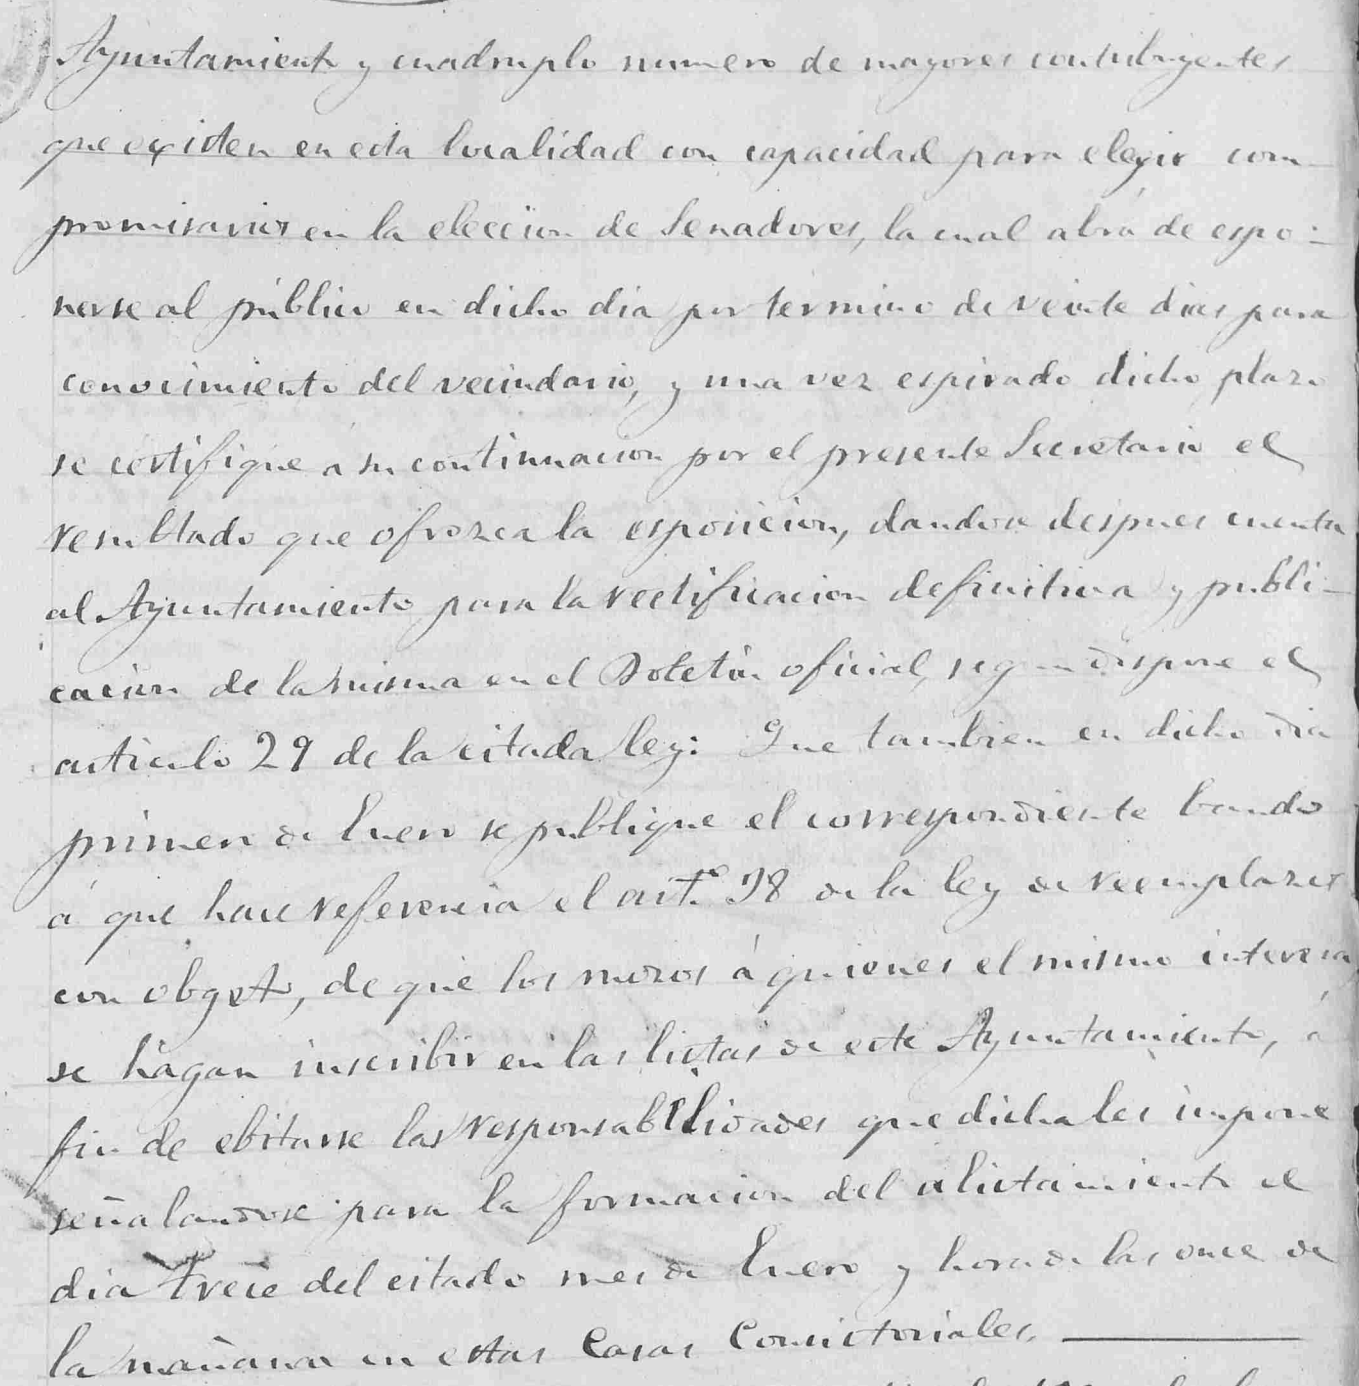 Ayuntamiento y cuadruplo numero de mayores contribuyentes
que existen en esta localidad con capacidad para elegir com-
promisarios en la eleccion de Senadores, la cual abrá de espo-
nerse al público en dicho dia por termino de veinte dias para
conocimiento del vecindario, y una vez espirado dicho plazo
se certifique á su continuacion por el presente Secretario el
resultado que ofrezca la esposicion, dandose despues cuenta
al Ayuntamiento para la rectificacion definitiva y publi-
cacion de la misma en el Boletin oficial, segun dispone el
articulo 29 de la citada ley: Que tambien en dicho dia
primero de Enero se publique el correspondiente bando
á que hace referencia el art.º 38 de la ley de reemplazos
con obgeto, de que los mozos á quienes el mismo interesa,
se hagan inscribir en las listas de este Ayuntamiento, á
fin de ebitarse las responsabilidades que dicha les impone
señalandose para la formacion del alistamiento el
dia trece del citado mes de Enero y hora de las once de
la mañana en estas Casas Consistoriales.